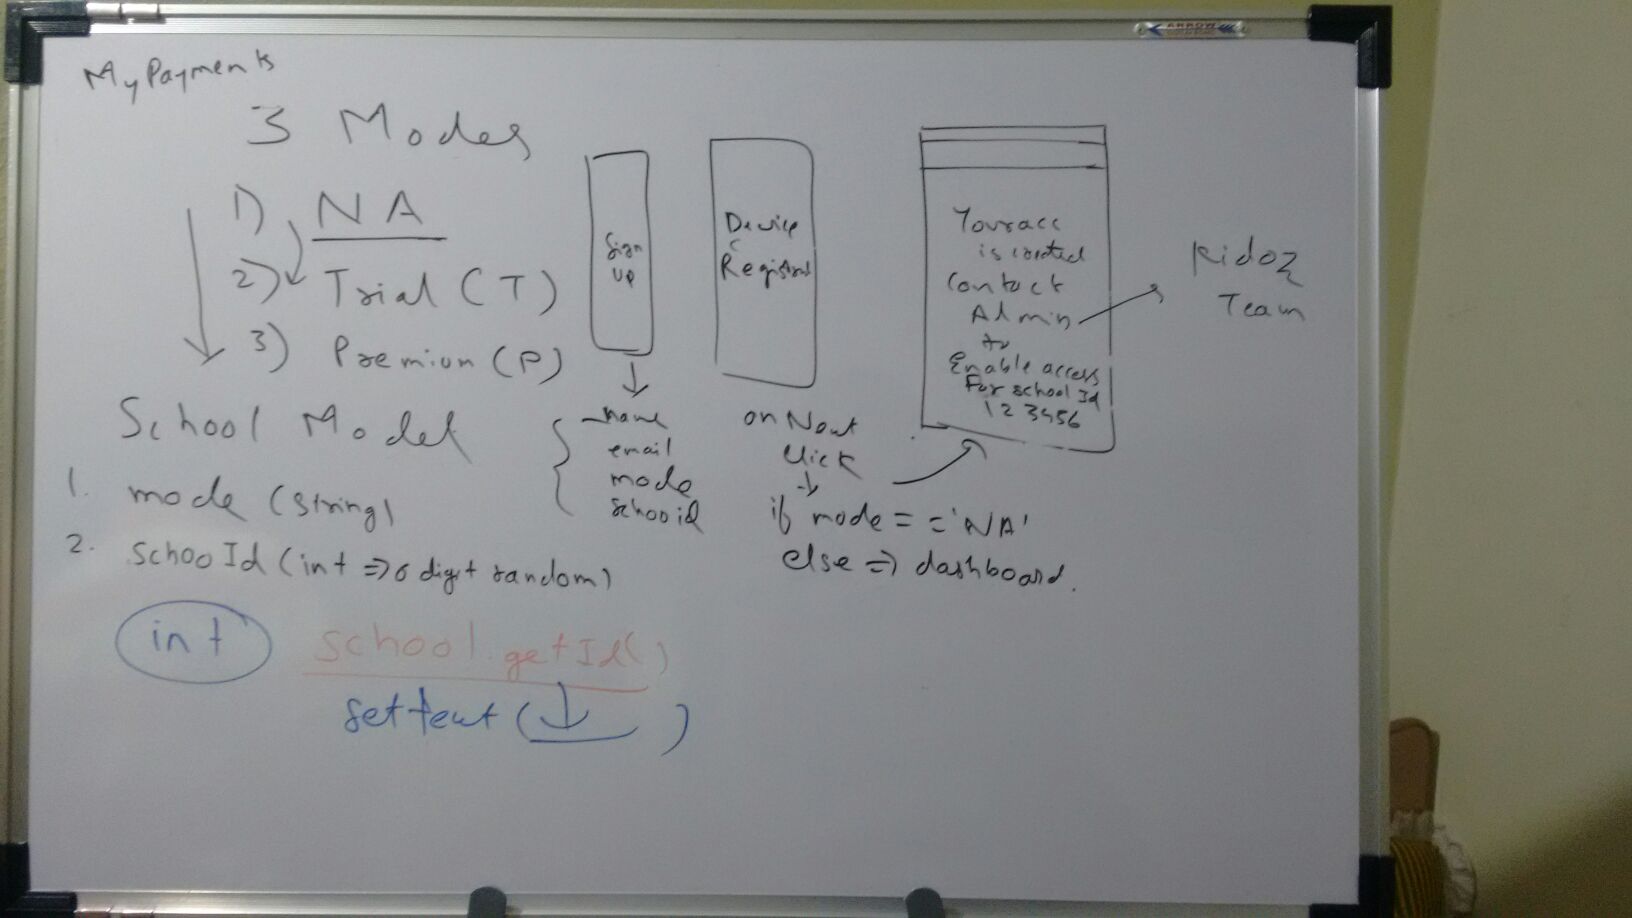 ARROW
MyPayments
3 Modes
1) NA
2) Trial (T)
3) Premium (P)
School Model
1. mode (string)
2. SchooId (int => 6 digit random)
int
school.getId()
settext( )
Sign
UP
name
email
mode
schooid
Device
Registrat
on Next
Click
if mode = = 'NA'
else => dashboard.
Your acc
is created
Contact
Admin
to
Enable access
For school Id
123456
Kidoz
Team